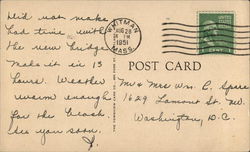 Did not make
bad time with
the new bridge.
Made it in 13
hours. Weather
warm enough
for the beach.
See you soon.
J.
WHITMAN
AUG 28
1951
MASS.
POST CARD
Mr & Mrs Wm. C. Spire
1629 Lamont St. NW
Washington, D.C.